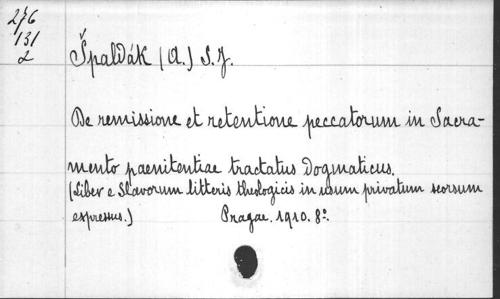 276
131
2
Špaldák (A.) S. J.
De remissione et retentione peccatorum in Sacra-
mento paenitentiae tractatus Dogmaticus.
(Liber e Slavorum litteris theologicis in usum privatum seorsum
expressus.) Pragae. 1910. 8°.